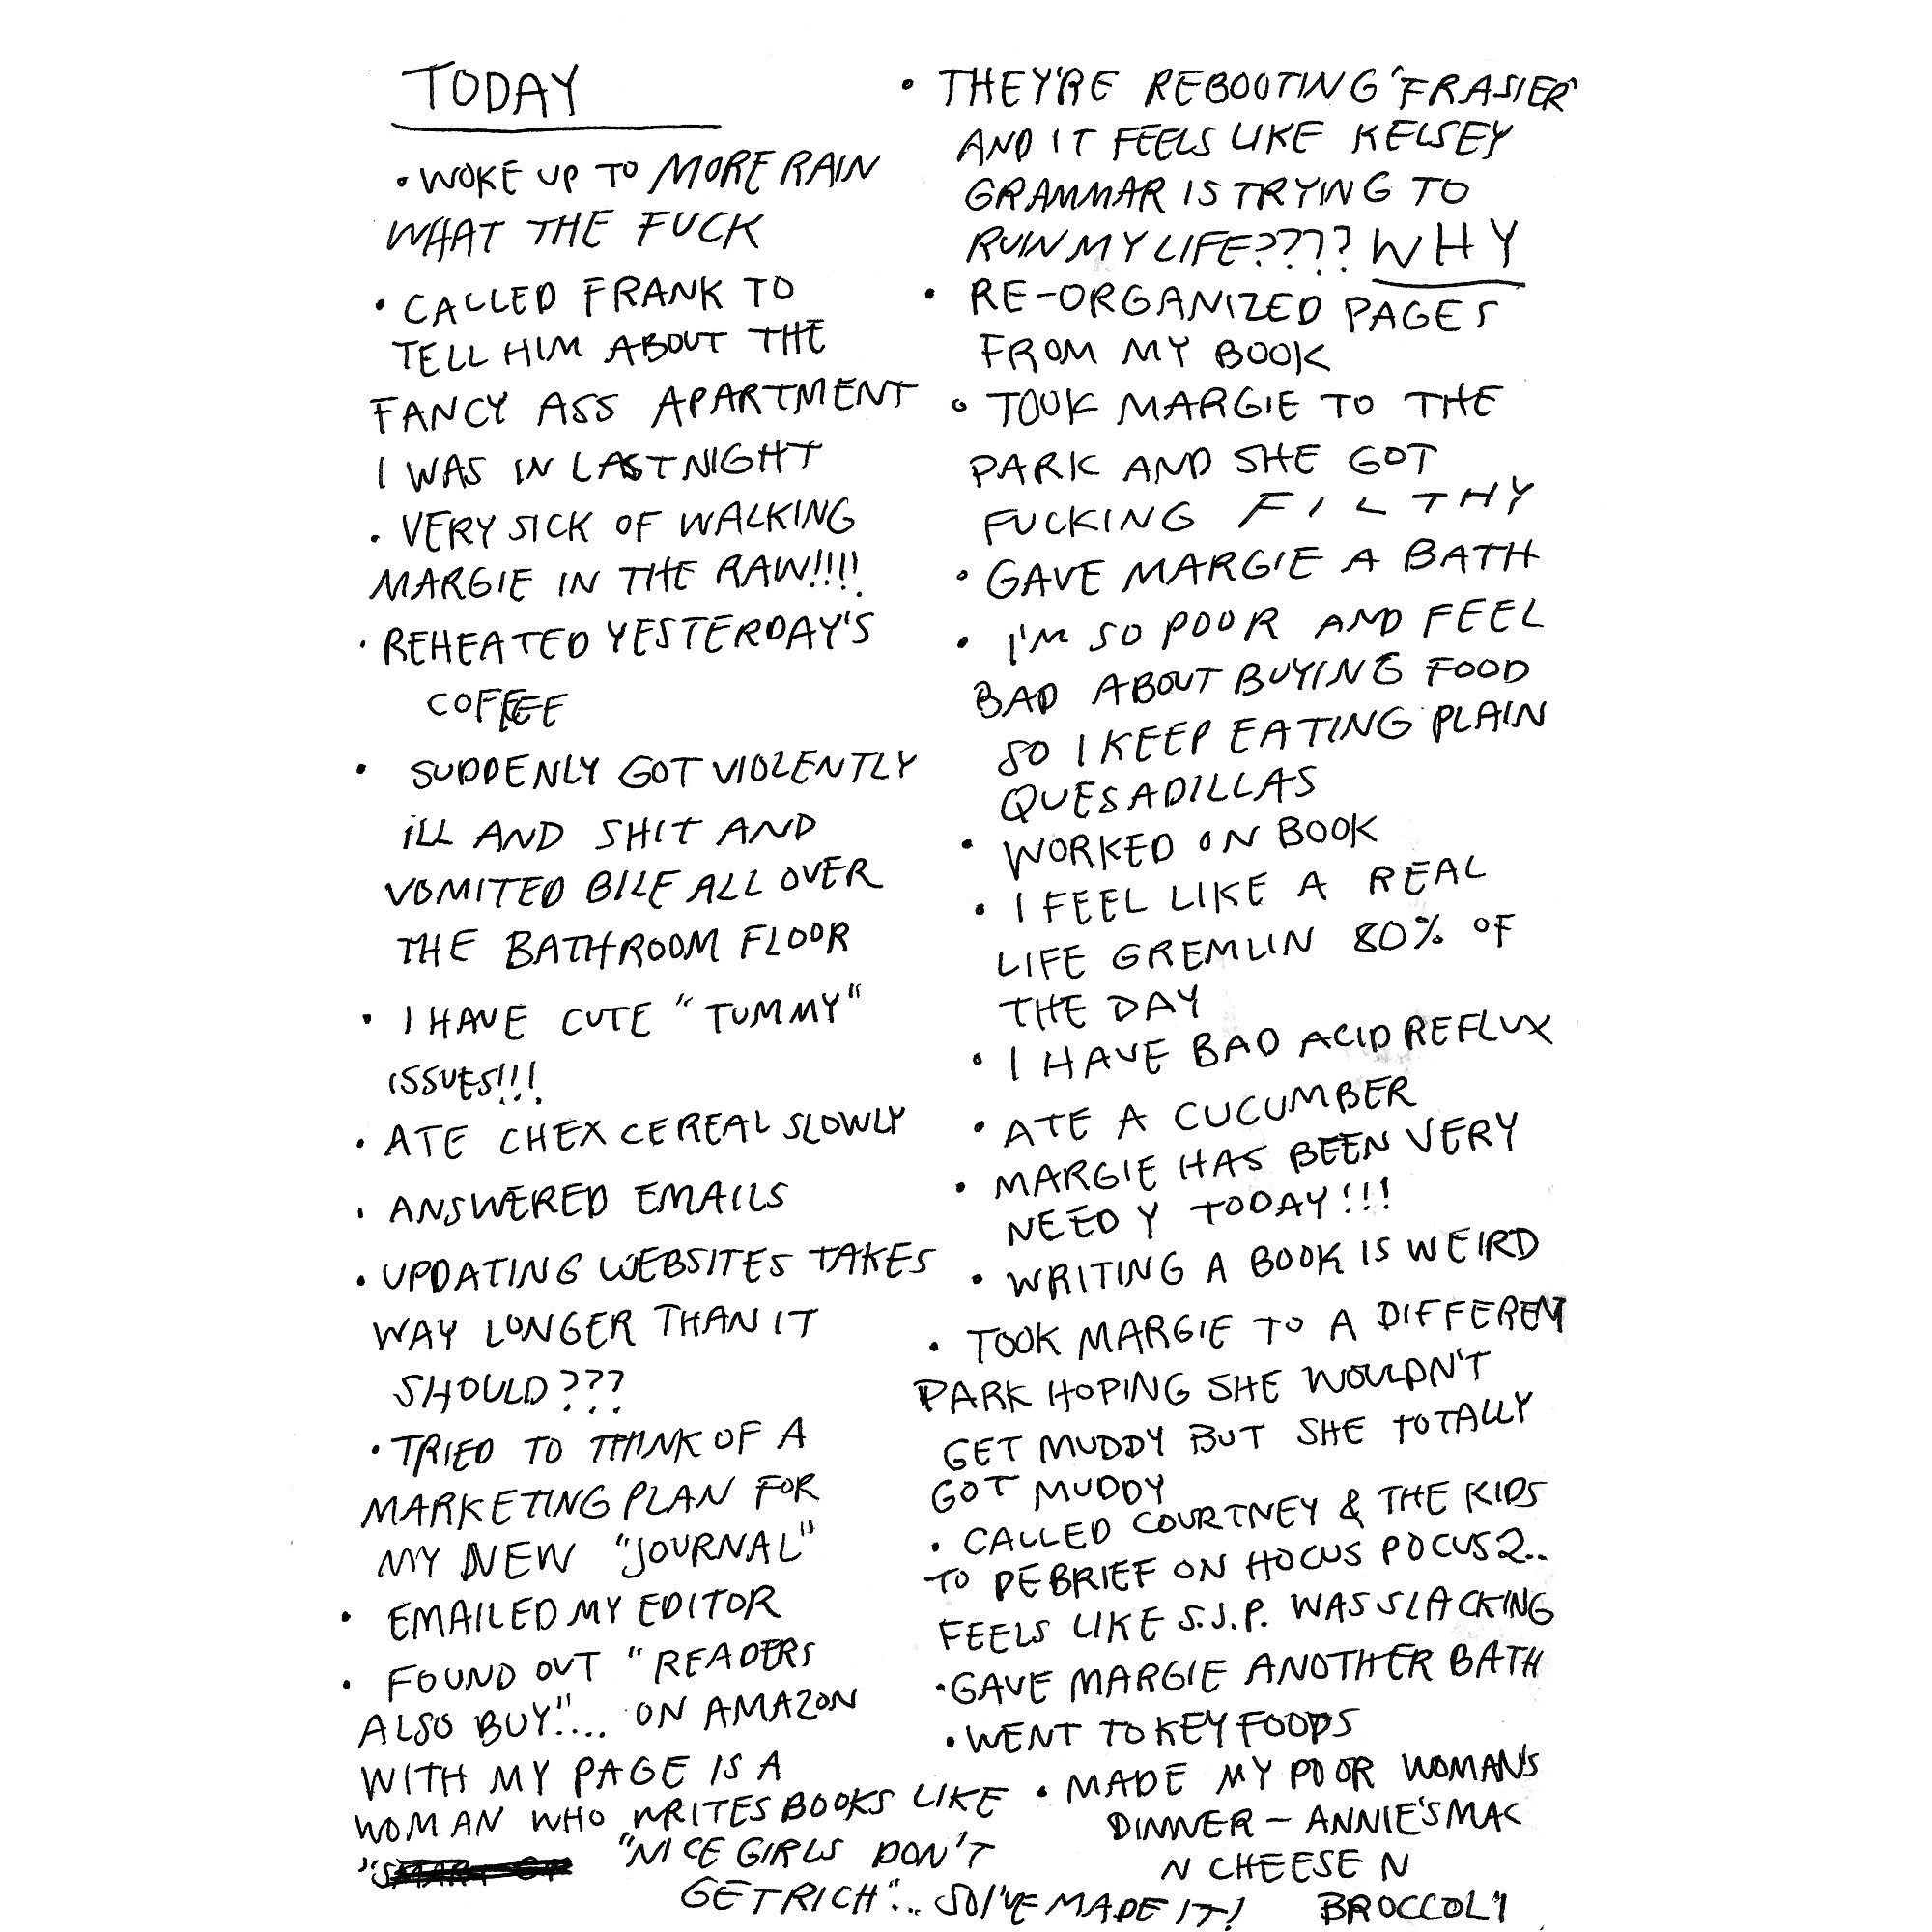 TODAY
• WOKE UP TO MORE RAIN
WHAT THE FUCK
• CALLED FRANK TO
TELL HIM ABOUT THE
FANCY ASS APARTMENT
I WAS IN LAST NIGHT
• VERY SICK OF WALKING
MARGIE IN THE RAW!!!!
• REHEATED YESTERDAY'S
COFFEE
• SUDDENLY GOT VIOLENTLY
ILL AND SHIT AND
VOMITED BILE ALL OVER
THE BATHROOM FLOOR
• I HAVE CUTE "TUMMY"
ISSUES!!!
• ATE CHEX CEREAL SLOWLY
• ANSWERED EMAILS
• UPDATING WEBSITES TAKES
WAY LONGER THAN IT
SHOULD???
• TRIED TO THINK OF A
MARKETING PLAN FOR
MY NEW "JOURNAL"
• EMAILED MY EDITOR
• FOUND OUT "READERS
ALSO BUY".... ON AMAZON
WITH MY PAGE IS A
WOMAN WHO WRITES BOOKS LIKE
"NICE GIRLS DON'T
GET RICH"... SO I'VE MADE IT!
• THEY'RE REBOOTING 'FRASIER'
AND IT FEELS LIKE KELSEY
GRAMMAR IS TRYING TO
RUIN MY LIFE???? WHY
• RE-ORGANIZED PAGES
FROM MY BOOK
• TOOK MARGIE TO THE
PARK AND SHE GOT
FUCKING FILTHY
• GAVE MARGIE A BATH
• I'M SO POOR AND FEEL
BAD ABOUT BUYING FOOD
SO I KEEP EATING PLAIN
QUESADILLAS
• WORKED ON BOOK
• I FEEL LIKE A REAL
LIFE GREMLIN 80% OF
THE DAY
• I HAVE BAD ACID REFLUX
• ATE A CUCUMBER
• MARGIE HAS BEEN VERY
NEEDY TODAY!!!
• WRITING A BOOK IS WEIRD
• TOOK MARGIE TO A DIFFERENT
PARK HOPING SHE WOULDN'T
GET MUDDY BUT SHE TOTALLY
GOT MUDDY
• CALLED COURTNEY & THE KIDS
TO DEBRIEF ON HOCUS POCUS 2..
FEELS LIKE S.J.P. WAS SLACKING
• GAVE MARGIE ANOTHER BATH
• WENT TO KEY FOODS
• MADE MY POOR WOMAN'S
DINNER - ANNIE'S MAC
N CHEESE N
BROCCOLI